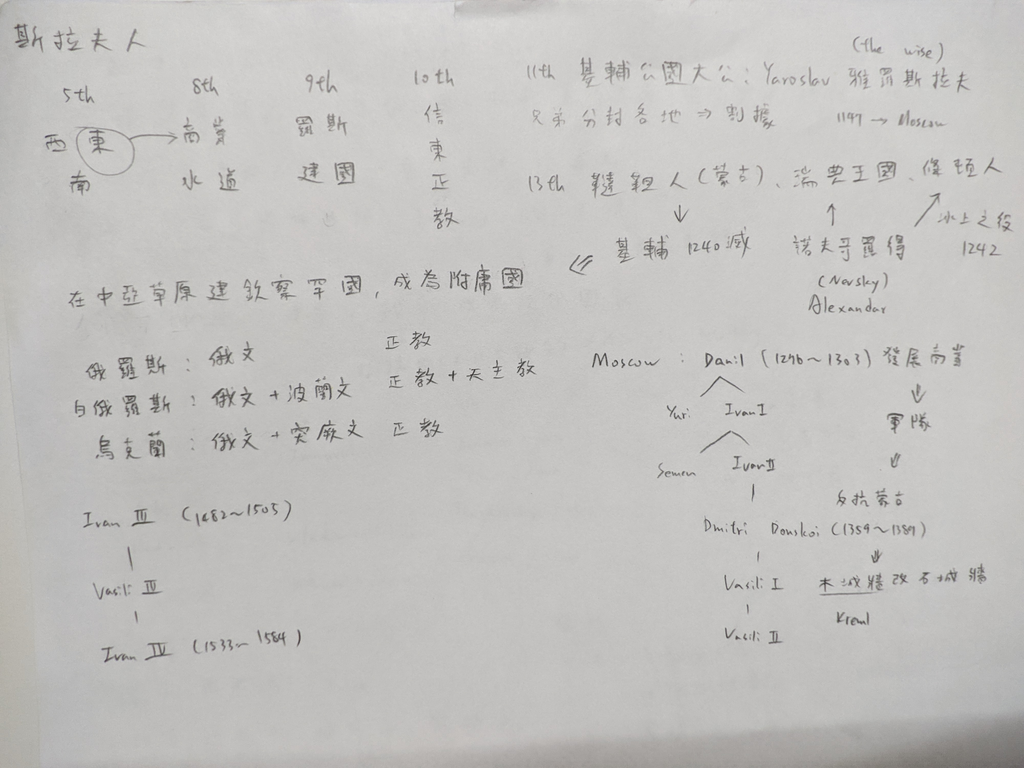 斯拉夫人
5th 8th 9th 10th
西 東 → 商業 羅斯 信東正教
南 水道 建國
11th 基輔公國大公：Yaroslav 雅羅斯拉夫
(the wise)
兄弟分封各地 ⇒ 割據 1147 → Moscow
13th 韃靼人(蒙古)、瑞典王國、條頓人
↓ ↑ ↗ 冰上之役
⇐ 基輔 1240滅 諾夫哥羅得 1242
(Nevsky)
Alexandar
在中亞草原建欽察罕國，成為附庸國
俄羅斯：俄文 正教
白俄羅斯：俄文+波蘭文 正教+天主教
烏克蘭：俄文+突厥文 正教
Moscow : Danil (1276~1303) 發展商業
Yuri Ivan I 軍隊
Semen Ivan II
反抗蒙古
Dmitri Donskoi (1359~1389)
Vasili I 木城牆改石城牆
Vasili II Kreml
Ivan III (1482~1505)
Vasili III
Ivan IV (1533~1584)